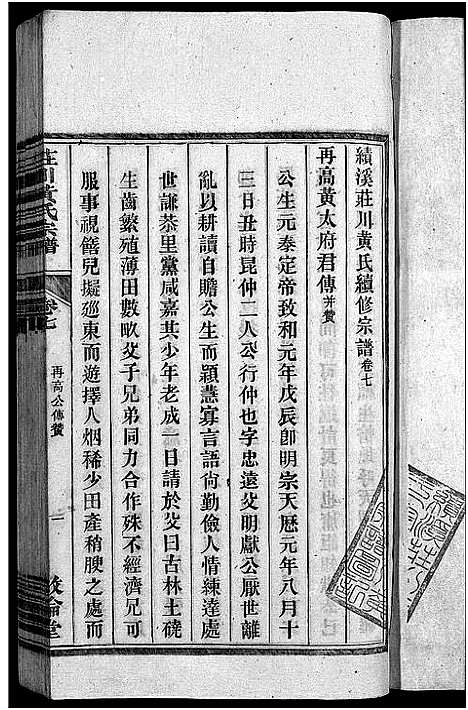 績溪莊川黃氏續修宗譜卷七
再高黃太府君傳并贊
公生元泰定帝致和元年戊辰卽明宗天厯元年八月十
三日丑時昆仲二人公行仲也字忠遠父明獻公厭世離
亂以耕讀自贍公生而穎慧寡言語尙勤儉人情練達處
世謙恭里黨咸嘉其少年老成一日請於父曰古林土磽
生齒繁殖薄田數畝父子兄弟同力合作殊不經濟兄可
服事視簪兒擬廵東而遊擇人烟稀少田產稍腴之處而
莊川黃氏宗譜
卷七
再高公傳贊
一
敘倫堂